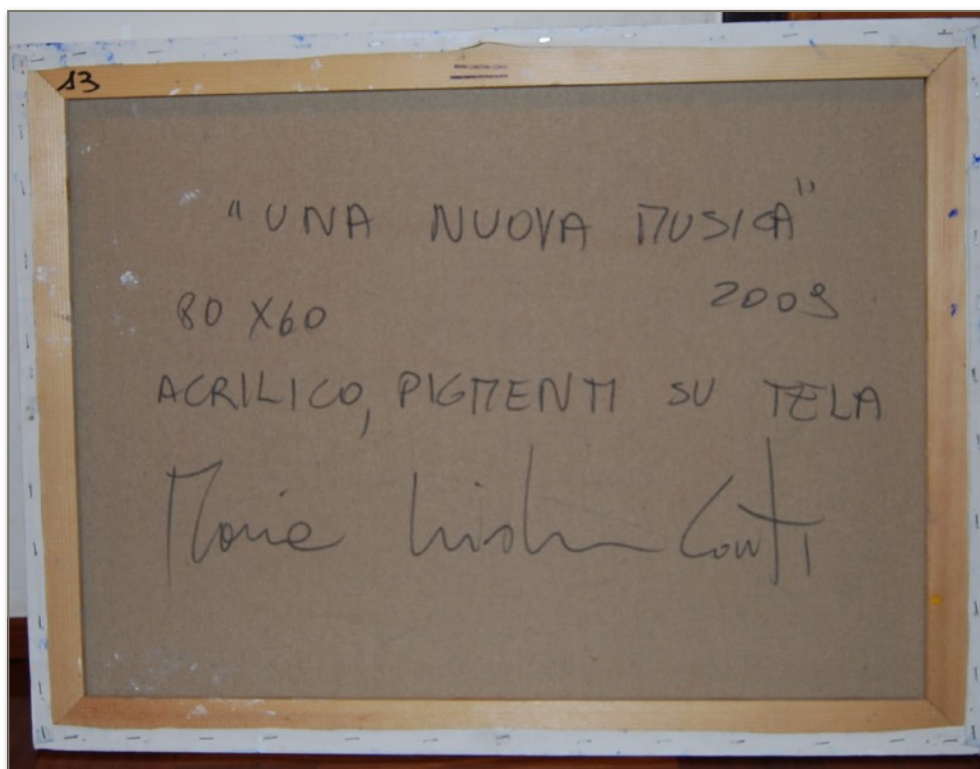 13
"UNA NUOVA MUSICA"
80 X 60 2009
ACRILICO, PIGMENTI SU TELA
Maria Conti